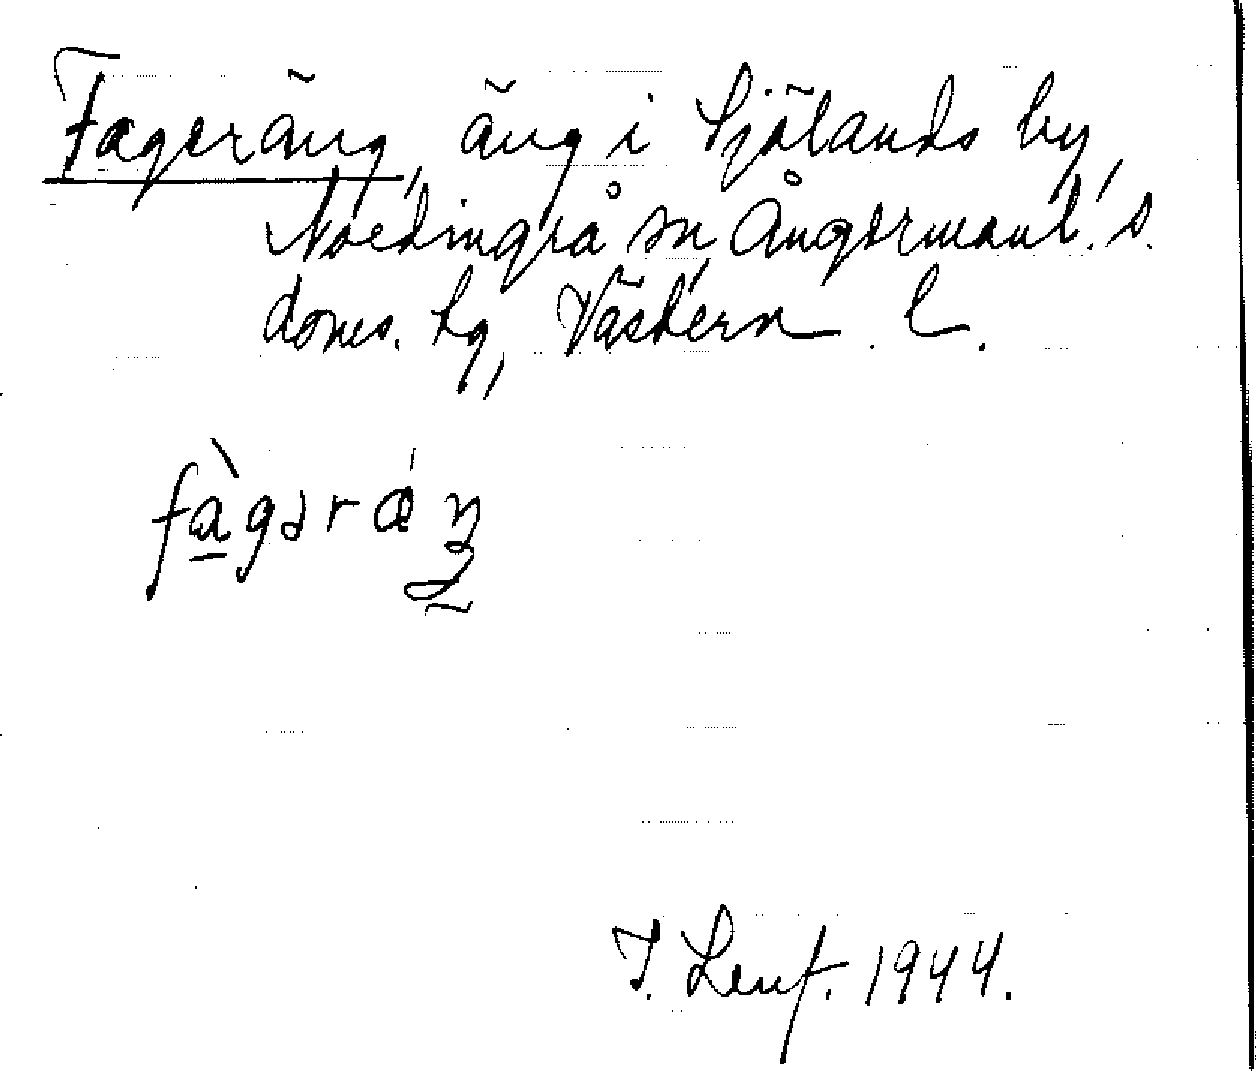 Fageräng, äng i Själands by,
Nordingrå sn, Ångermanl:s.
doms. hg, Västern. l.
fàgəræ´ŋ
J. Lenf. 1944.